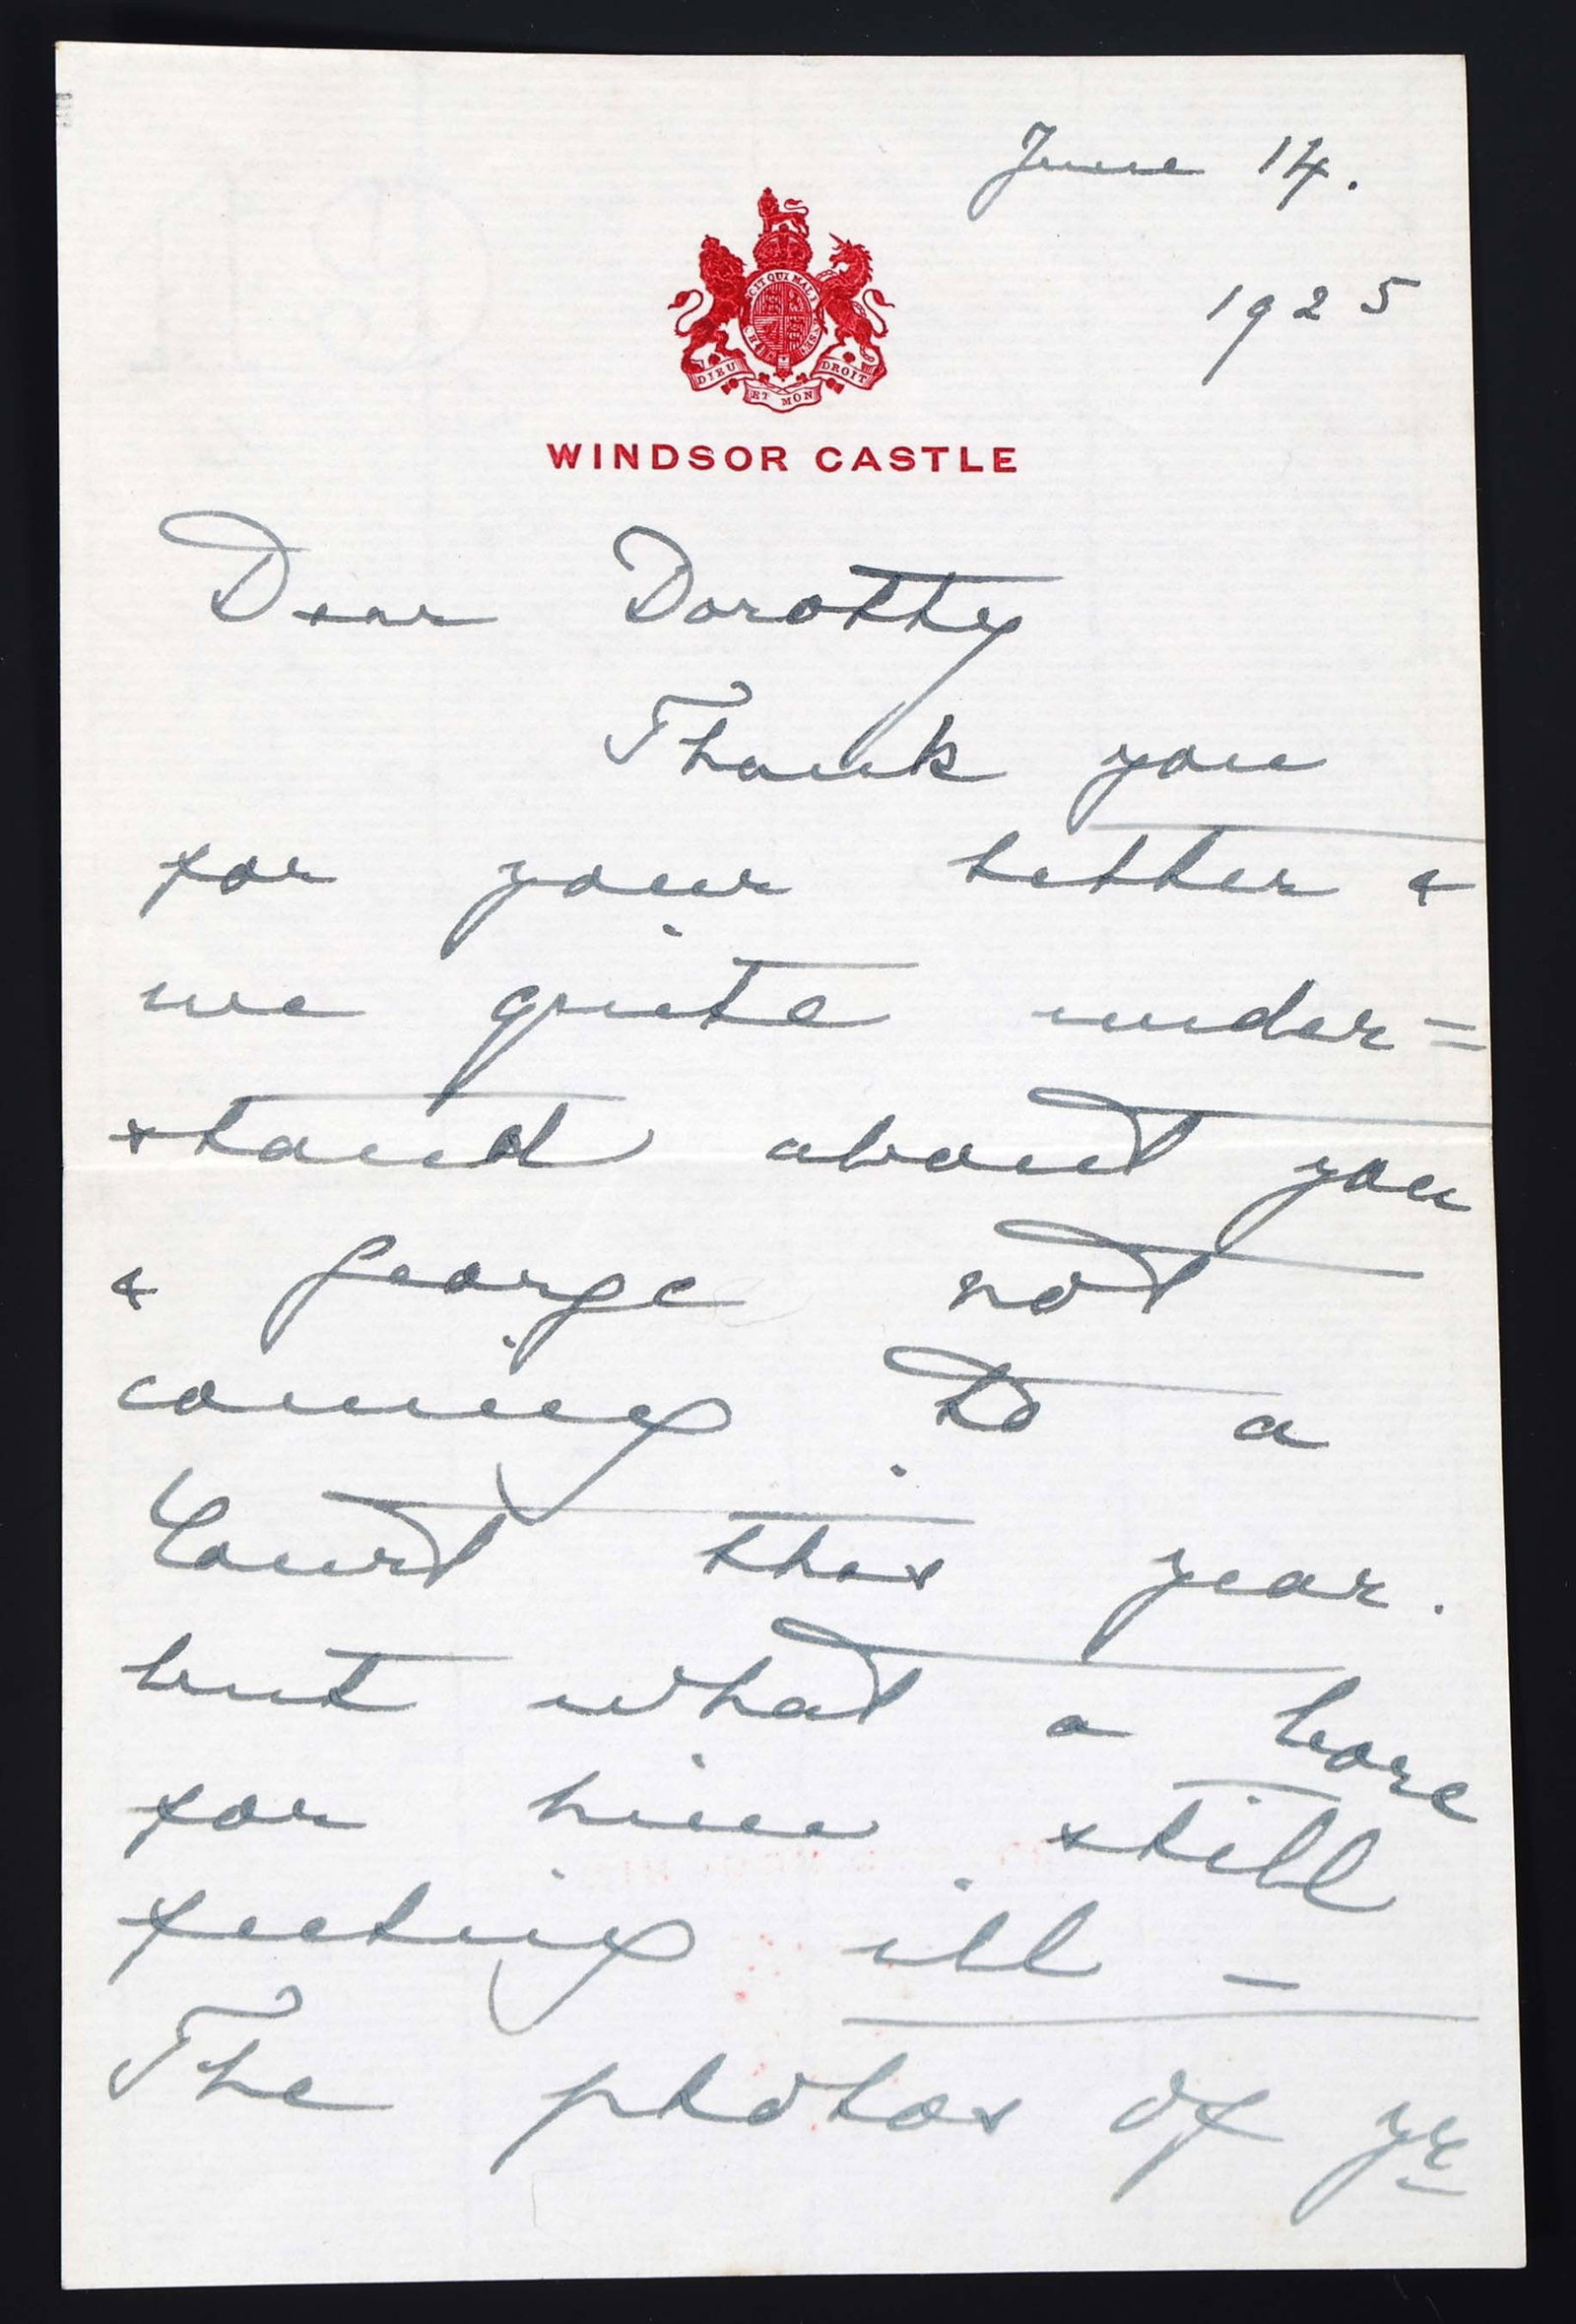 June 14.
1925
DIEU ET MON DROIT
WINDSOR CASTLE
Dear Dorothy
Thank you
for your letter &
we quite under=
stand about you
& George not
coming to a
Court this year.
but what a bore
for him still
feeling ill –
The photos of yr